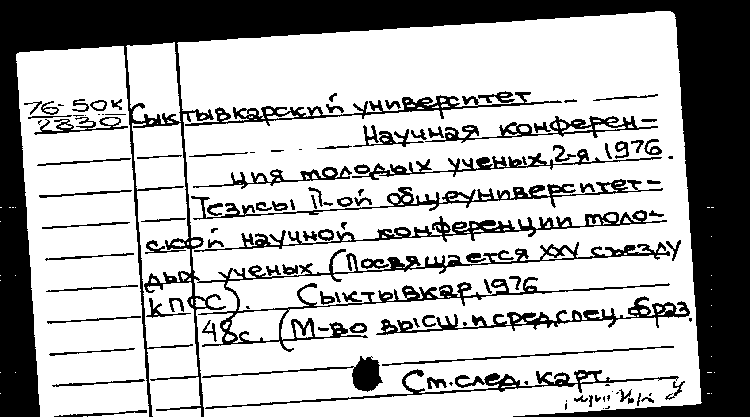 76-50к Сыктывкарский университет
2830
Научная конферен-
ция молодых ученых, 2-я. 1976.
Тезисы II-ой общеуниверситет-
ской научной конференции моло-
дых ученых. (Посвящается XXV съезду
КПСС). Сыктывкар, 1976
48с. (М-во высш. и сред. спец. образ.
См. след. карт.